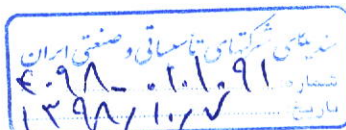 سندیکای شرکتهای تاسیساتی و صنعتی ایران
شماره ۴۰۹۸-۰۱۰۱۰۹۱
تاریخ ۱۳۹۸/۱۰/۷